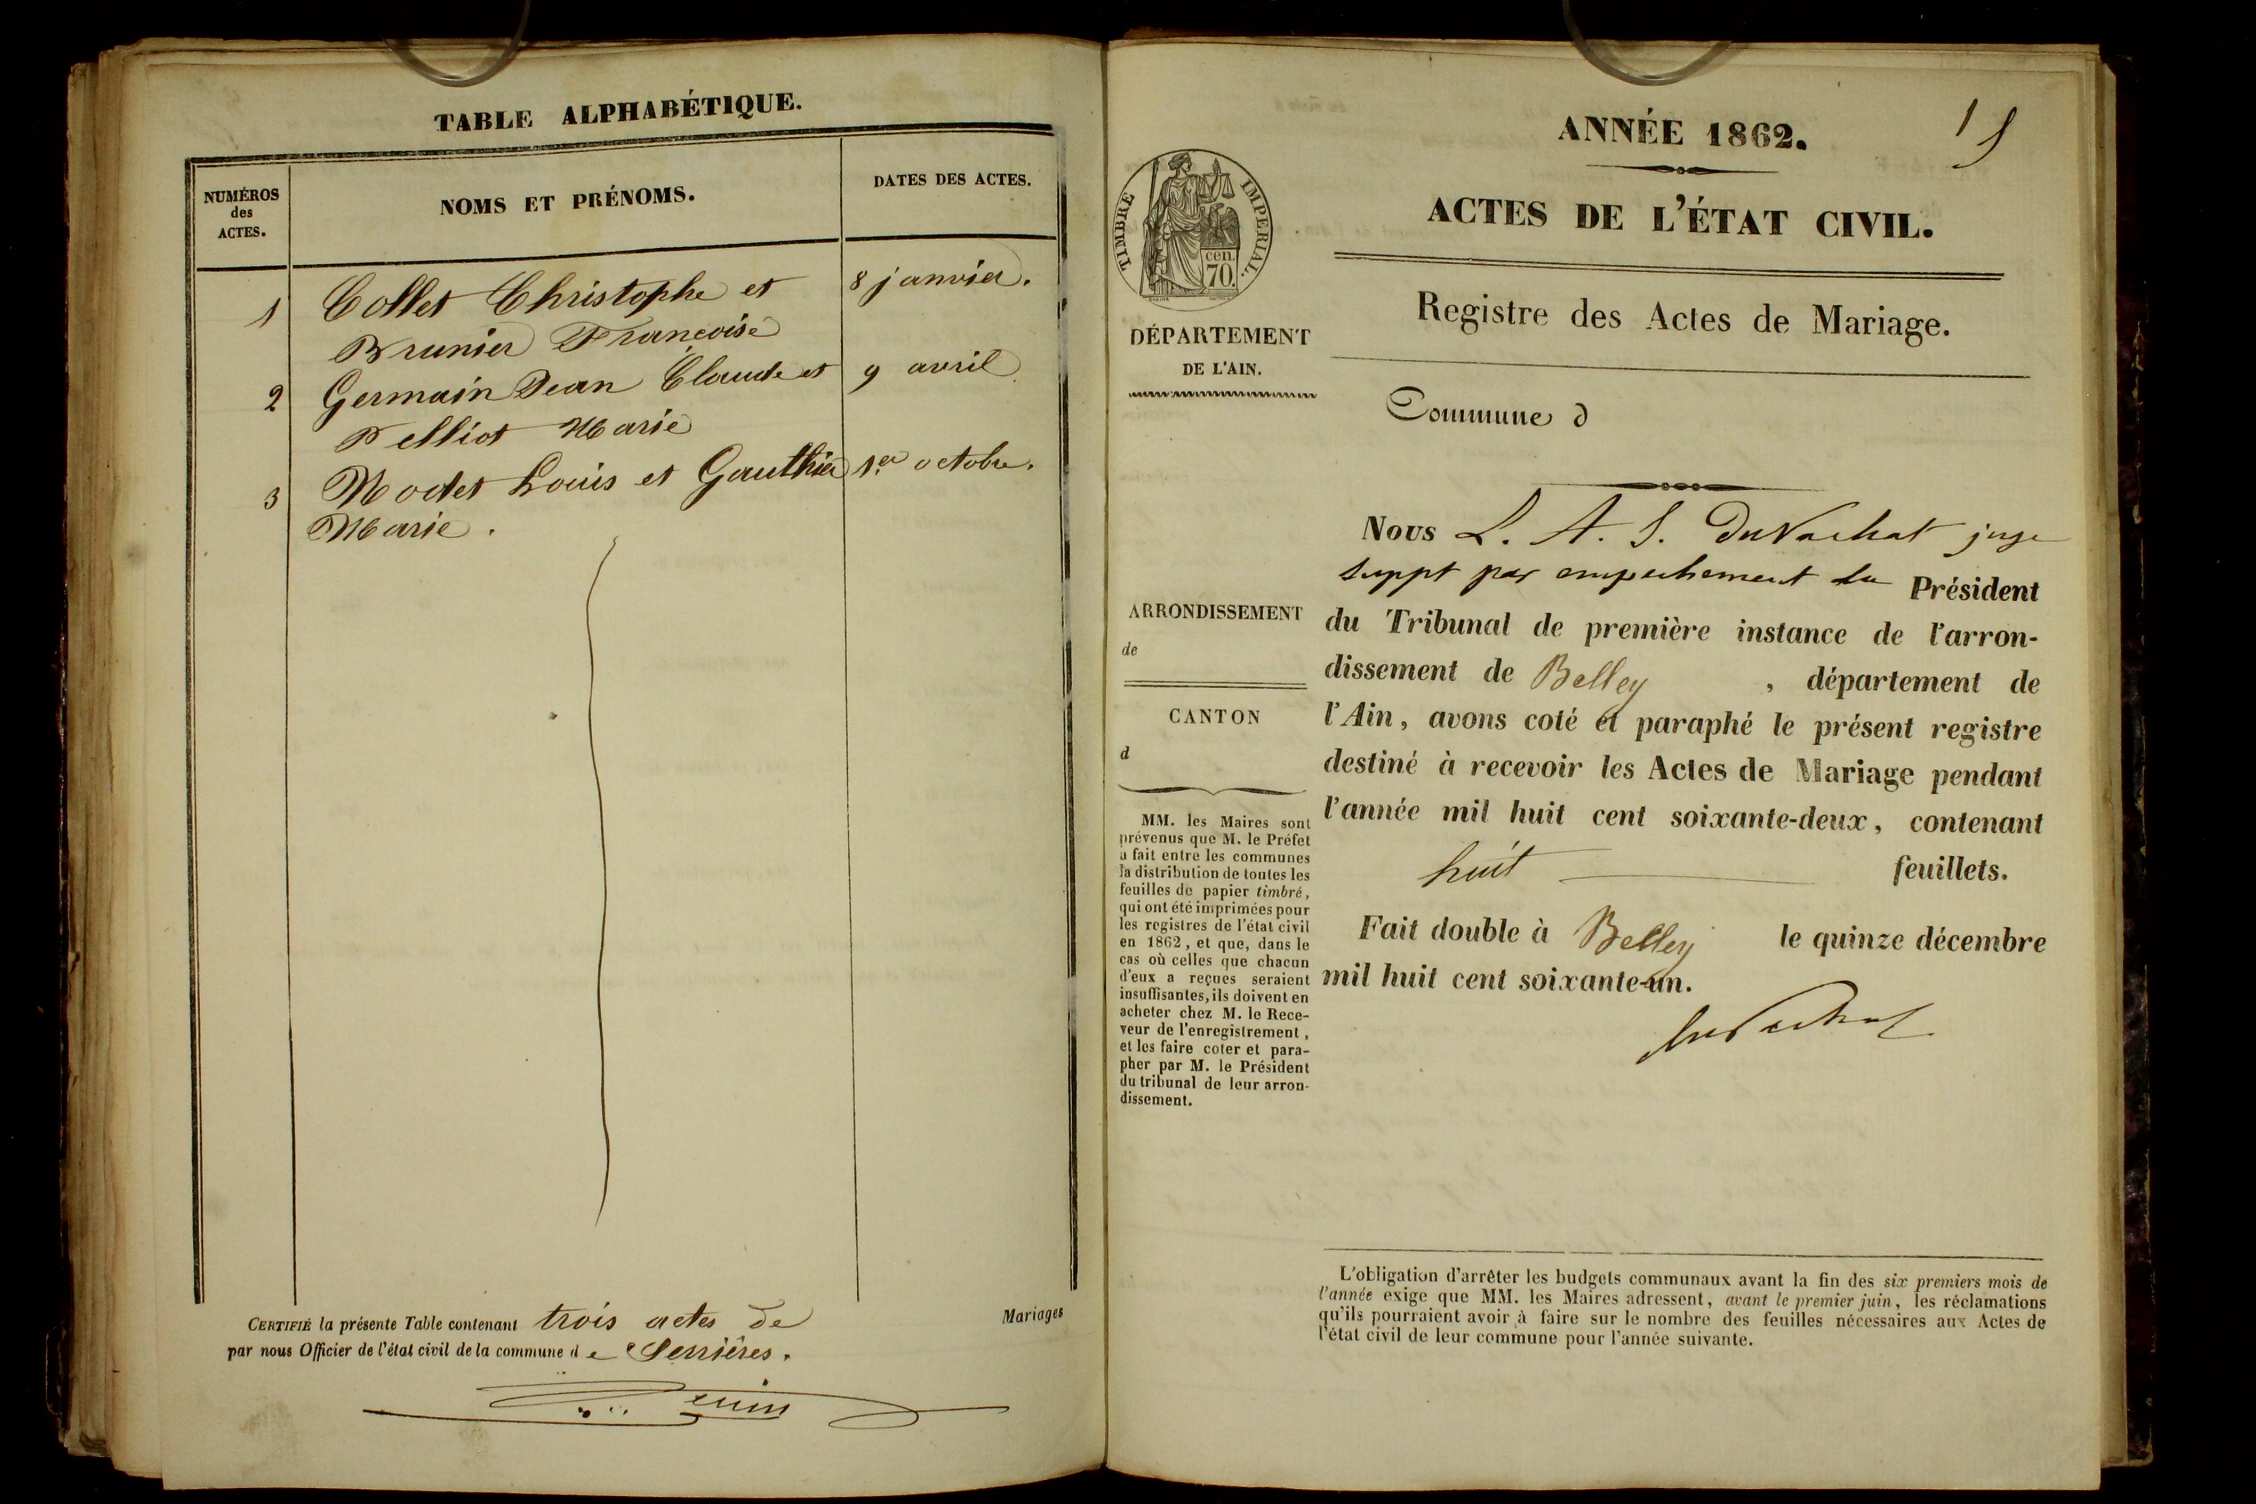 TABLE ALPHABÉTIQUE.
NUMÉROS
des
ACTES.
NOMS ET PRÉNOMS.
DATES DES ACTES.
1 Collet Christophe et 8 janvier.
Brunier Françoise
2 Germain Jean Claude et 9 avril
Pelliot Marie
3 Modet Louis et Gauthier 1er octobre.
Marie.
CERTIFIÉ la présente Table contenant trois actes de Mariages
par nous Officier de l'état civil de la commune de Serrières.
ANNÉE 1862.
ACTES DE L'ÉTAT CIVIL.
Registre des Actes de Mariage.
TIMBRE IMPERIAL.
cen.
70.
DÉPARTEMENT
DE L'AIN.
Commune d
ARRONDISSEMENT
de
CANTON
d
MM. les Maires sont
prévenus que M. le Préfet
a fait entre les communes
la distribution de toutes les
feuilles de papier timbré,
qui ont été imprimées pour
les registres de l'état civil
en 1862, et que, dans le
cas où celles que chacun
d'eux a reçues seraient
insuffisantes, ils doivent en
acheter chez M. le Rece-
veur de l'enregistrement,
et les faire coter et para-
pher par M. le Président
du tribunal de leur arron-
dissement.
Nous L. A. S. DuVachat juge
suppt par empechement du Président
du Tribunal de première instance de l'arron-
dissement de Belley , département de
l'Ain, avons coté et paraphé le présent registre
destiné à recevoir les Actes de Mariage pendant
l'année mil huit cent soixante-deux, contenant
huit feuillets.
Fait double à Belley le quinze décembre
mil huit cent soixante-un.
DuVachat
L'obligation d'arrêter les budgets communaux avant la fin des six premiers mois de
l'année exige que MM. les Maires adressent, avant le premier juin, les réclamations
qu'ils pourraient avoir à faire sur le nombre des feuilles nécessaires aux Actes de
l'état civil de leur commune pour l'année suivante.